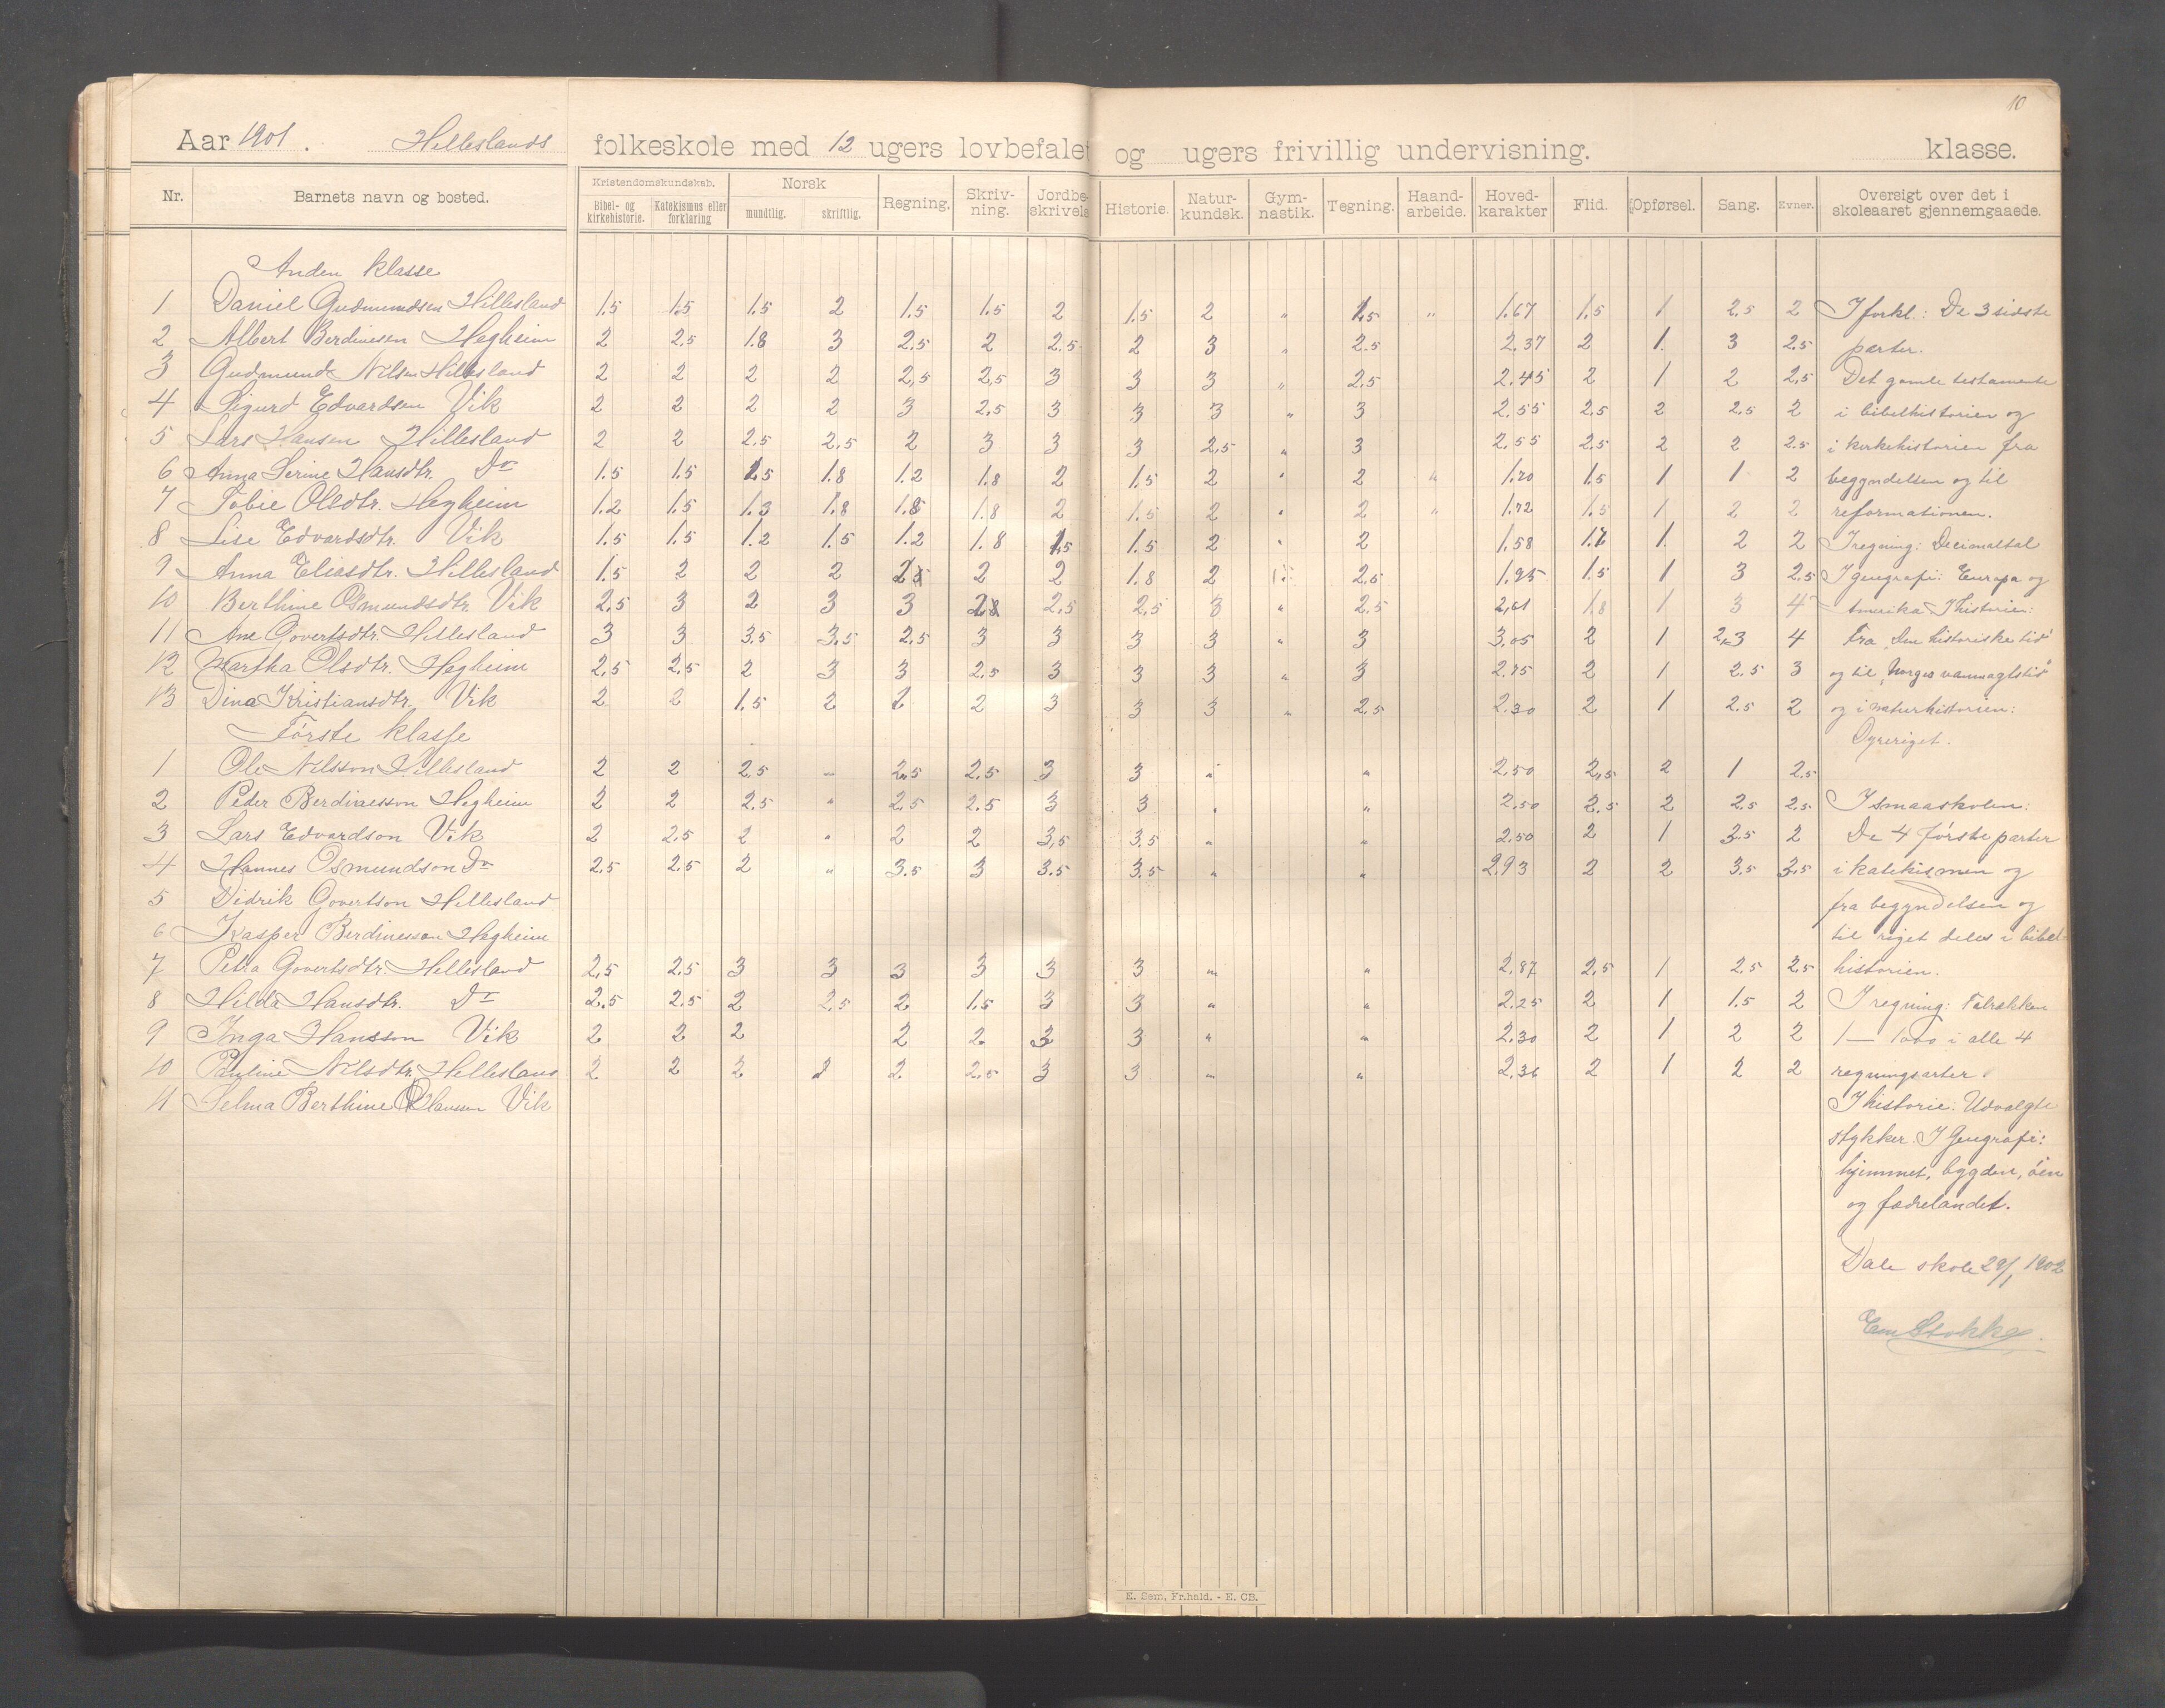 10
Aar 1901. Hilleslands folkeskole med 12 ugers lovbefalet og ugers frivillig undervisning. klasse.
Nr. Barnets navn og bosted. Kristendomskundskab. Bibel- og kirkehistorie. Katekismus eller forklaring Norsk mundtlig. skriftlig. Regning. Skriv-ning. Jordbe-skrivels Historie. Natur-kundsk. Gym-nastik. Tegning. Haand-arbeide. Hoved-karakter Flid. Opførsel. Sang. Evner. Oversigt over det i skoleaaret gjennemgaaede.
Anden klasse
1 Daniel Gudmundsen Hillesland 1.5 1.5 1.5 2 1.5 1.5 2 1.5 2 " 1.5 " 1.67 1.5 1 2.5 2 I forkl.: De 3 sidste
2 Albert Berdinesen Hegheim 2 2.5 1.8 3 2.5 2 2.5 2 3 " 2.5 2.37 2 1. 3 2.5 parter.
3 Gudmund Nilsen Hillesland 2 2 2 2 2,5 2,5 3 3 3 " 2,5 2.45 2 1 2 2,5 Det gamle testamente
4 Sigurd Edvardsen Vik 2 2 2 2 3 2,5 3 3 3 " 3 2.55 2.5 2 2.5 2 i bibelhistorien og
5 Lars Hansen Hillesland 2 2 2.5 2,5 2 3 3 3 2,5 " 3 2.55 2.5 2 2 2.5 i kirkehistorien fra
6 Anna Serine Hansdtr. Do 1.5 1.5 1.5 1.8 1.2 1.8 2 1.5 2 " 2 " 1.70 1.5 1 1 2 begyndelsen og til
7 Tobie Olsdtr. Hegheim 1.2 1.5 1.3 1.8 1.8 1.8 2 1.5 2 " 2 " 1.72 1.5 1 2 2 reformationen.
8 Lise Edvardsdtr. Vik 1.5 1.5 1.2 1.5 1.2 1.8 1.5 1.5 2 " 2 1.58 1.7 1 2 2 I regning: Decimaltal
9 Anna Eliasdtr. Hillesland 1.5 2 2 2 2.5 2 2 1.8 2 2.5 1.95 1.5 1 3 2.5 I geografi: Europa og
10 Berthine Osmundsdtr. Vik 2,5 3 2 3 3 2.8 2,5 2,5 3 " 2.5 2,61 1.8 1 3 4 Amerika I historien:
11 Ane Govertsdtr. Hillesland 3 3 3.5 3.5 2,5 3 3 3 3 " 3 3,05 2 1 2,3 4 Fra "Den historiske tid"
12 Martha Olsdtr. Hegheim 2,5 2,5 2 3 3 2.5 3 3 3 " 3 2.75 2 1 2.5 3 og til "Norges vanmagtstid"
13 Dina Kristiansdtr. Vik 2 2 1.5 2 2 2 3 3 3 " 2,5 2.30 2 1 2.5 2 og i naturhistorien:
Første klasse Dyreriget.
1 Ole Nilsson Hillesland 2 2 2.5 " 2.5 2.5 3 3 " " 2.50 2,5 2 1 2.5
2 Peder Berdinesson Hegheim 2 2 2.5 " 2.5 2.5 3 3 " " 2.50 2.5 2 2.5 2.5 I smaaskolen:
3 Lars Edvardson Vik 2 2.5 2 " 2 2 3,5 3.5 " " 2.50 2 1 3.5 2 De 4 første parter
4 Hannes Osmundson Do 2.5 2.5 2 " 3.5 3 3.5 3.5 " " 2.93 2 2 3.5 3.5 i katekismen og
5 Didrik Govertson Hillesland fra begyndelsen og
6 Kasper Berdinesson Hegheim til riget deles i bibel-
7 Petra Govertsdtr. Hillesland 2,5 2.5 3 3 3 3 3 3 " " 2.87 2,5 1 2.5 2.5 historien.
8 Hilda Hansdtr. Do 2.5 2.5 2 2.5 2 1.5 3 3 " " 2.25 2 1 1.5 2 I regning: Talrækken
9 Inga Hansson Vik 2 2 2 2 2 3 3 " " 2.30 2 1 2 2 1 — 1000 i alle 4
10 Pauline Nilsdtr. Hillesland 2 2 2 2 2 2.5 3 3 " " 2.36 2 1 2 2 regningsarter.
11 Selma Berthine Hansen Vik I historie: Udvalgte
stykker. I Geografi:
hjemmet, bygden, øen
og fædrelandet.
Dale skole 29/1 1902
Em Stokke.
E. Sem, Fr.hald. - E. CB.